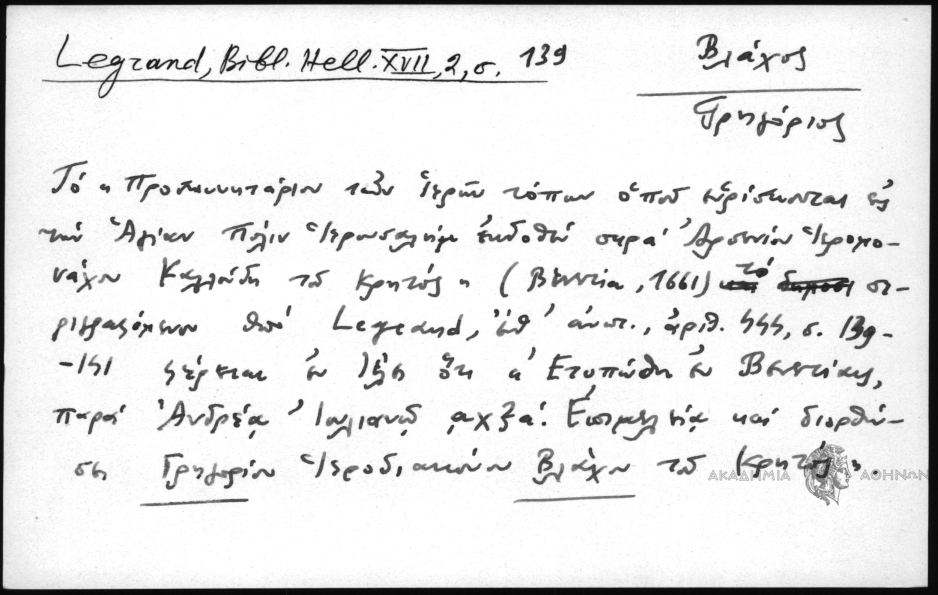 Legrand, Bibl. Hell. XVII, 2, σ. 139
Βλάχος
Γρηγόριος
Τό « Προσκυνητάριον τῶν Ἱερῶν τόπων ὁποῦ εὑρίσκονται εἰς
τήν Ἁγίαν Πόλιν Ἱερουσαλήμ ἐκδοθέν παρά Ἀρσενίου Ἱερομο-
νάχου Καλλούδη τοῦ Κρητός » (Βενετία, 1661) τό
περιγραφόμενον ὑπό Legrand, ἔνθ' ἀνωτ., ἀριθ. 444, σ. 139-
-141 φέρεται ἐν τέλει ὅτι « Ετυπώθη ἐν Βενετίαις,
παρά Ἀνδρέᾳ Ἰουλιανῷ ͵αχξα΄. Ἐπιμελείᾳ καί διορθώ-
σει Γρηγορίου Ἱεροδιακόνου Βλάχου τοῦ Κρητός ».
ΑΚΑΔΗΜΙΑ ΑΘΗΝΩΝ